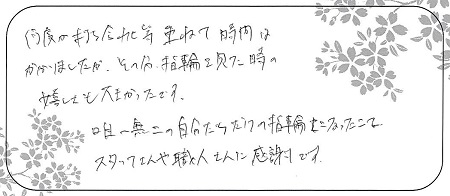 何度か打ち合わせ等重ねて時間は
かかりましたが、その分、指輪を見た時の
嬉しさも大きかったです。
唯一無二の自分たちだけの指輪となったこと
スタッフさんや職人さんに感謝です。